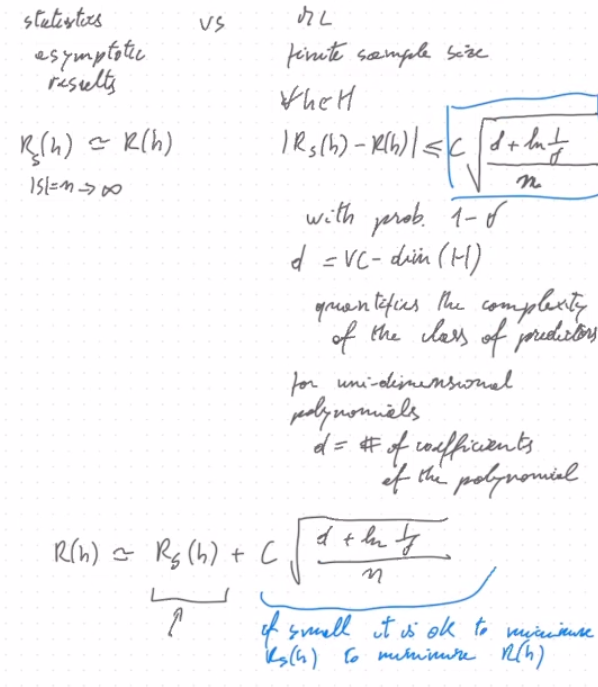 statistics vs ML
asymptotic finite sample size
results
∀h∈H
R_S(h) ≃ R(h) |R_S(h) - R(h)| ≤ C √((d + ln 1/δ)/n)
|S|=n→∞
with prob. 1-δ
d = VC-dim(H)
quantifies the complexity
of the class of predictors
for uni-dimensional
polynomials
d = # of coefficients
of the polynomial
R(h) ≃ R_S(h) + C √((d + ln 1/δ)/n)
if small it is ok to minimise
R_S(h) to minimise R(h)